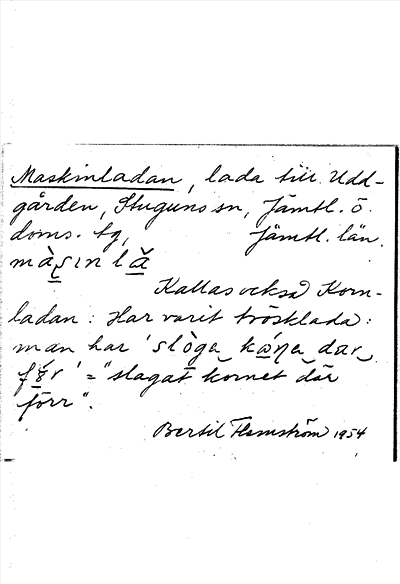 Maskinladan, lada till Udd-
gården, Stuguns sn, Jämtl. ö.
doms. tg, Jämtl. län.
Kallas också Korn-
ladan: Har varit trösklada:
man har 'slòga kɷ́ṇa dar
fɷ́r' = "slagat kornet där
förr".
Bertil Flemström 1954